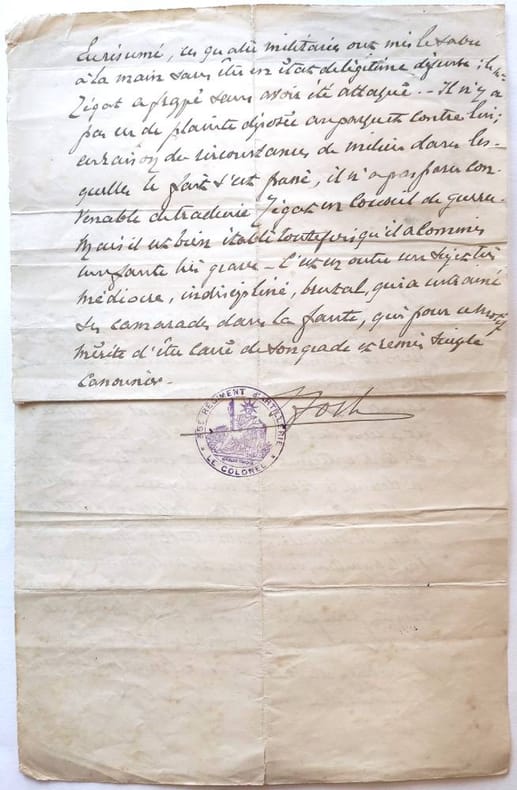 En résumé, ces quatre militaires ont mis le sabre
à la main sans être en état de légitime défense ; le
Zigot a frappé sans avoir été attaqué. - Il n'y a
pas eu de plainte déposée au parquet contre lui ;
en raison des circonstances de milieu dans les-
quelles le fait s'est passé, il n'a pas paru con-
venable de traduire Zigot en Conseil de guerre.
Mais il est bien établi toutefois qu'il a commis
une faute très grave - C'est en outre un sujet très
médiocre, indiscipliné, brutal, qui a entraîné
ses camarades dans la faute, qui pour ce motif
mérite d'être cassé de son grade et remis simple
canonnier.
Foch
RÉGIMENT D'ARTILLERIE
LE COLONEL